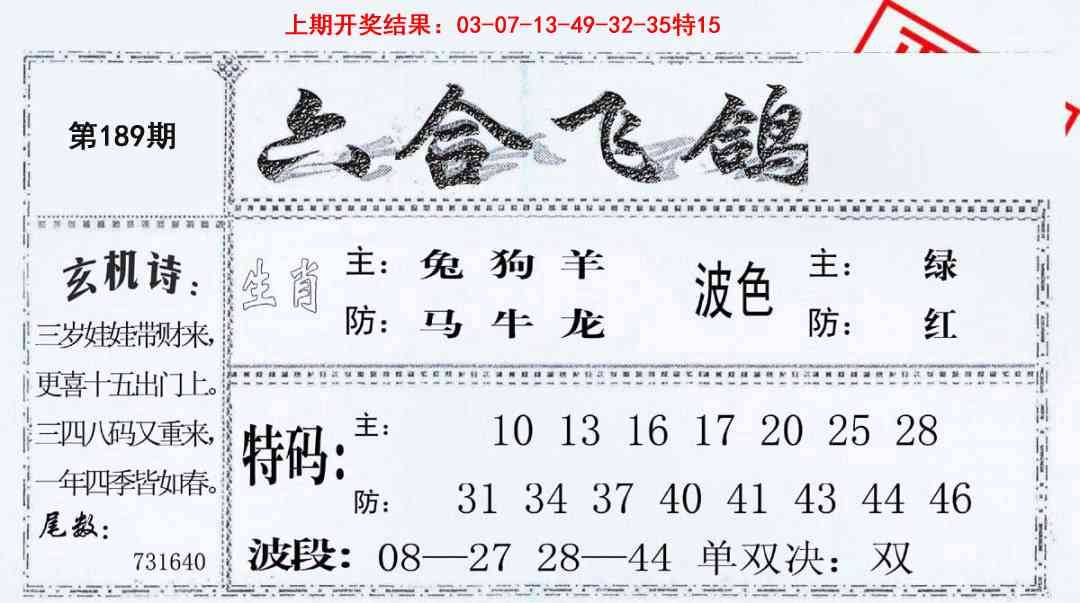 上期开奖结果：03-07-13-49-32-35特15
第189期
六合飞鸽
玄机诗：
三岁娃娃带财来，
更喜十五出门上。
三四八码又重来，
一年四季皆如春。
尾数：
731640
生肖
主：兔 狗 羊
防：马 牛 龙
波色
主：绿
防：红
特码：
主：10 13 16 17 20 25 28
防：31 34 37 40 41 43 44 46
波段：08—27 28—44 单双决：双